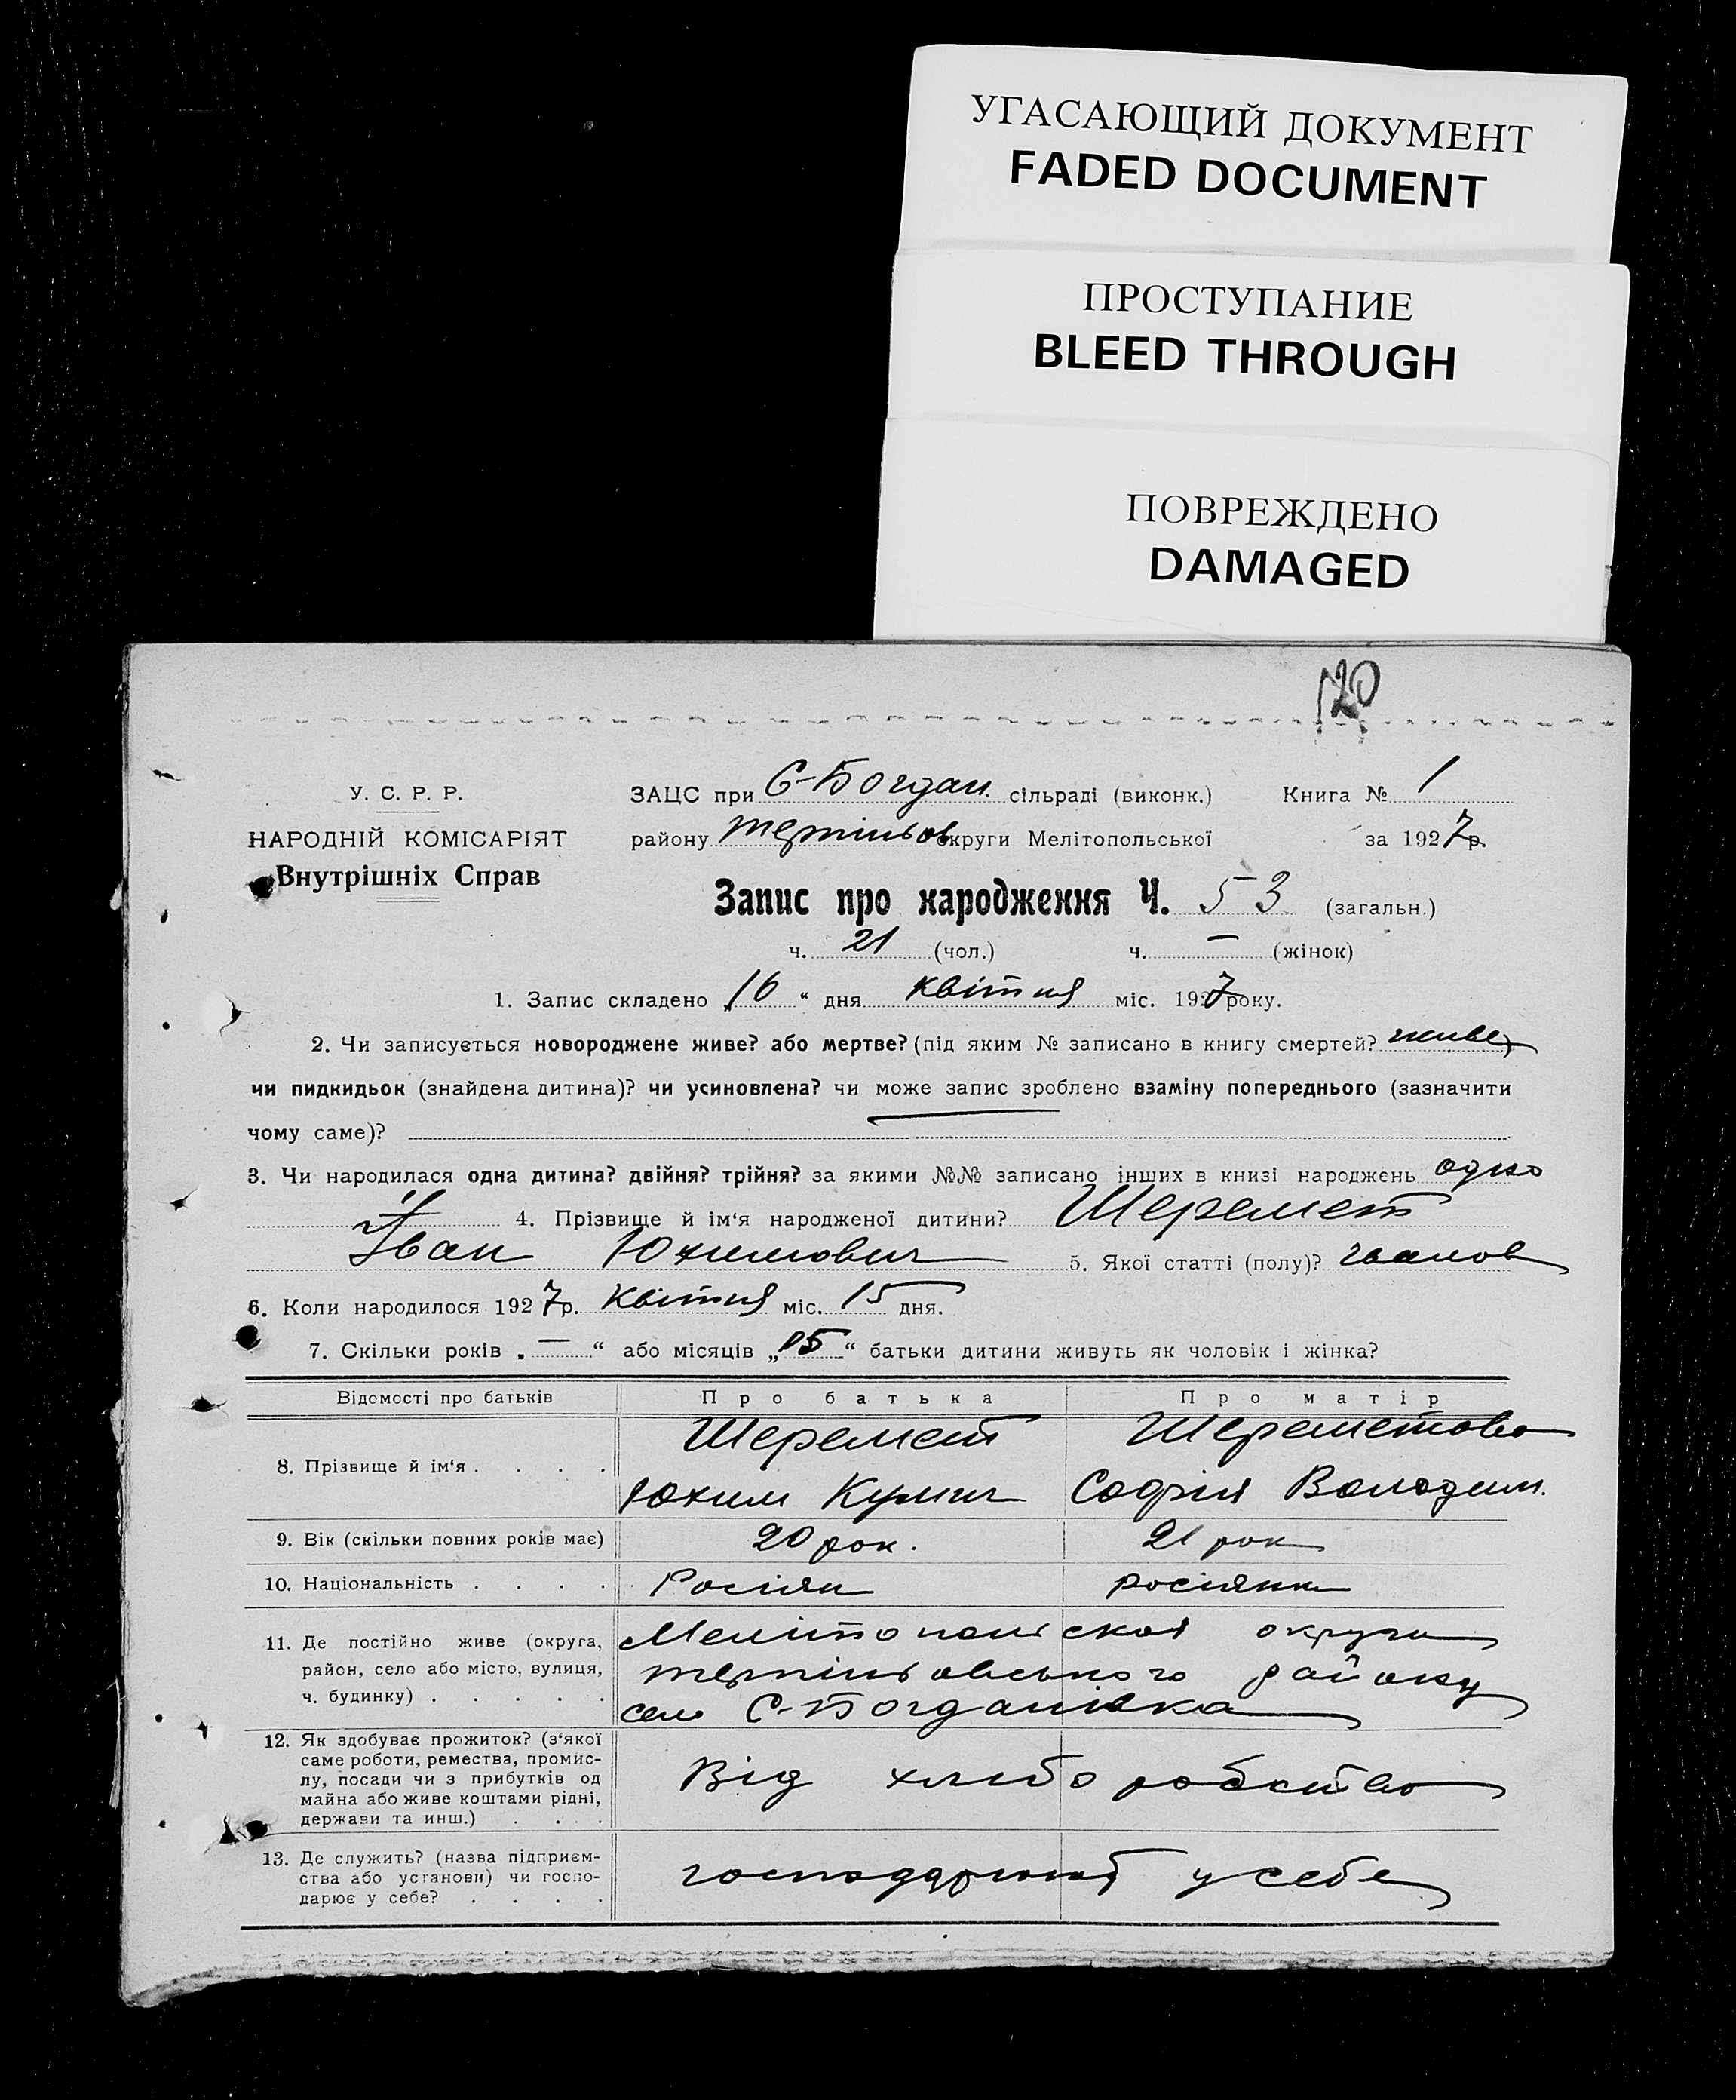 УГАСАЮЩИЙ ДОКУМЕНТ
FADED DOCUMENT
ПРОСТУПАНИЕ
BLEED THROUGH
ПОВРЕЖДЕНО
DAMAGED
120
У. С. Р. Р.
НАРОДНІЙ КОМІСАРІЯТ
Внутрішніх Справ
ЗАЦС при С-Богдан. сільраді (виконк.) Книга № 1
району округи Мелітопольської за 1927 р.
Запис про народження Ч. 53 (загальн.)
ч. 21 (чол.) ч. — (жінок)
1. Запис складено „16“ дня квітня міс. 1927 року.
2. Чи записується новороджене живе? або мертве? (під яким № записано в книгу смертей? живе
чи пидкидьок (знайдена дитина)? чи усиновлена? чи може запис зроблено взаміну попереднього (зазначити
чому саме)?
3. Чи народилася одна дитина? двійня? трійня? за якими №№ записано інших в книзі народжень одно
4. Прізвище й ім‘я народженої дитини? Шеремет
Іван Юхимович 5. Якої статті (полу)?
6. Коли народилося 1927 р. Квітня міс. 15 дня.
7. Скільки років „—“ або місяців „15“ батьки дитини живуть як чоловік і жінка?
Відомості про батьків Про батька Про матір
8. Прізвище й ім‘я . . . . Шеремет Шереметова
Юхим Софія Володим.
9. Вік (скільки повних років має) 20 рок. 21 рок
10. Національність . . . . Росіян росіянка
11. Де постійно живе (округа, район, село або місто, вулиця, ч. будинку) . . . . . Мелітопольская округа
району
село С-Богданівка
12. Як здобуває прожиток? (з‘якої саме роботи, ремества, промислу, посади чи з прибутків од майна або живе коштами рідні, держави та инш.) . . . . Від хлиборобства
13. Де служить? (назва підприємства або установи) чи господарює у себе? . . . . господарюют у себе